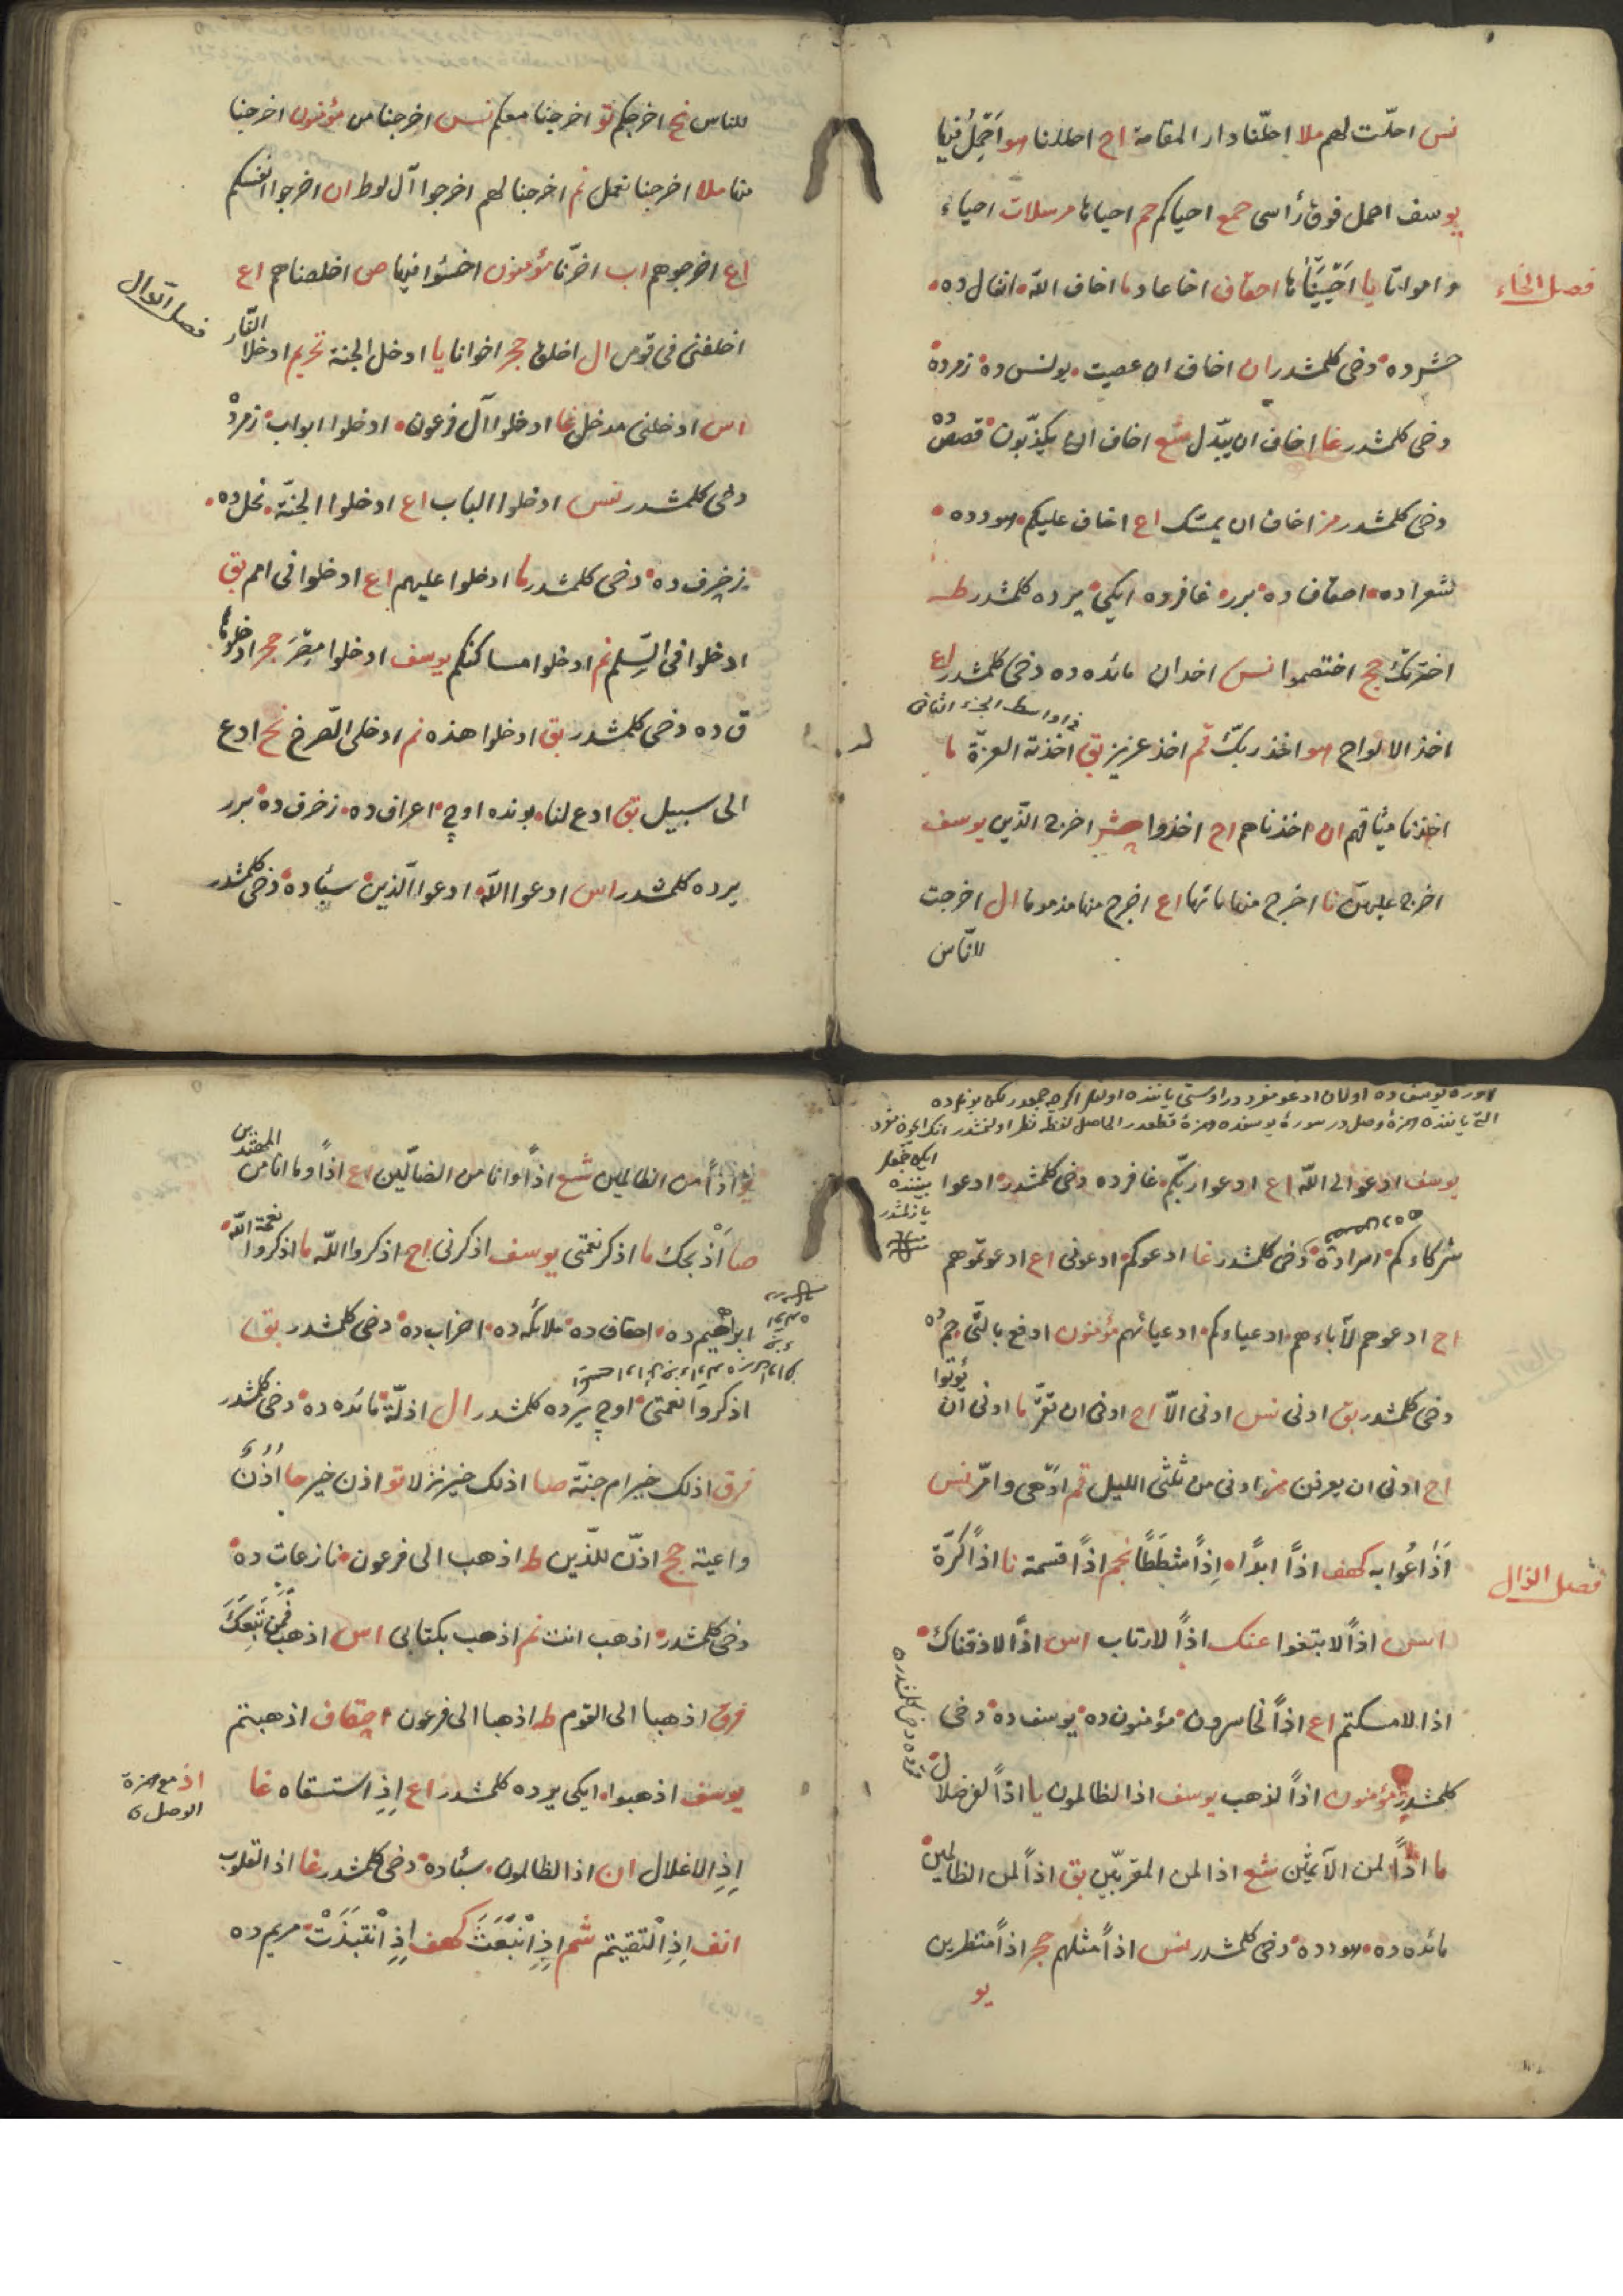 نس احلّت لهم ملا احلّنا دار المقامة اح احللنا هو احمل فيها
يوسف احمل فوق رأسى حمع احياكم حم احياها مرسلات احياء
وامواتا يا احييناها احقاف اخا عاد ما اخاف اللّه انفال ده
فصل الخاء
حشر ده دخى كلمشدر ان اخاف ان عصيت يونس ده زمر ده
دخى كلمشدر غا اخاف ان يبدّل شع اخاف ان يكذّبون قصص ده
دخى كلمشدر مر اخاف ان يمسّك اع اخاف عليكم هود ده
شعرا ده احقاف ده برر غافر ده ايكى ير ده كلمشدر طه
اخترتك حج اختصموا نس اخدان مائده ده دخى كلمشدر اع
فى اواسط الجزء الثانى
اخذ الالواح هو اخذ ربّك قم اخذ عزيز بق اخذته العزّة ما
اخذنا ميثاقهم ان اخذناهم اح اخذوا حشر اخرج الّذين يوسف
اخرج عليهنّ نا اخرج منها ماءها اع اخرج منها مذموما ال اخرجت
للنّاس
للناس نح اخرجكم تو اخرجنا معكم نس اخرجنا من مؤمنون اخرجنا
منها ملا اخرجنا نعمل نم اخرجنا لهم اخرجوا آل لوط ان اخرجوا انفسكم
اع اخرجوهم اب اخرّنا مؤمنون اخسؤا فيها ص اخلصناهم اع
فصل الدّال
اخلفنى فى قومى ال اخلق حجر اخوانا يا ادخل الجنة تحريم ادخلا النّار
اس ادخلنى مدخل غا ادخلوا آل فرعون ادخلوا ابواب زمر ده
دخى كلمشدر نس ادخلوا الباب اع ادخلوا الجنّة نحل ده
زخرف ده دخى كلمشدر ما ادخلوا عليهم اع ادخلوا فى امم بق
ادخلوا فى السّلم نم ادخلوا مساكنكم يوسف ادخلوا مصر حجر ادخلوها
ق ده دخى كلمشدر بق ادخلوا هذه نم ادخلى الصّرح نح ادع
الى سبيل بق ادع لنا بونده اوچ اعراف ده زخرف ده برر
ير ده كلمشدر اس ادعوا اللّه ادعوا الّذين سبأ ده دخى كلمشدر
يوسف ادعو الى اللّه اع ادعوا ربّكم غافر ده دخى كلمشدر ادعوا
شركاءكم اسرا ده دخى كلمشدر غا ادعوكم ادعونى اع ادعوتموهم
اح ادعوهم لآباءهم ادعياءكم ادعيائهم مؤمنون ادفع بالّتى حم ده
دخى كلمشدر بق ادنى نس ادنى الّا اح ادنى ان تقرّ ما ادنى ان يؤتوا
اح ادنى ان يعرفن مز ادنى من ثلثى الليل قم ادهى وامرّ نس
اذاعوا به كهف اذًا ابدًا اذًا شططًا نجم اذًا قسمة نا اذًا كرّة
فصل الذال
اس اذًا لابتغوا عنك اذًا لارتاب اس اذًا لاذقناك
اذا لامسكتم اع اذًا لخاسرون مؤمنون ده يوسف ده دخى
كلمشدر مؤمنون اذًا لذهب يوسف اذا لظالمون يا اذًا لفى ضلال
ما اذًا لمن الآثمين شع اذا لمن المقرّبين بق اذًا لمن الظالمين
مائده ده هود ده دخى كلمشدر نس اذًا مثلهم حجر اذًا منظرين
يو
يو اذًا من الظالمين شع اذًا وانا من الضالّين اع اذًا وما انا من المهتدين
صا اذبحك ما اذكر نعمتى يوسف اذكرنى اح اذكروا اللّه ما اذكروا نعمة اللّه
ابراهيم ده احقاف ده ملائكه ده احزاب ده دخى كلمشدر بق
اذكروا نعمتى اوچ ير ده كلمشدر ال اذلّة مائده ده دخى كلمشدر
فرق اذلك خير ام جنّة صا اذلك خير نزلا تو اذن خير حا اذن
واعية حج اذن للّذين ط اذهب الى فرعون نازعات ده
دخى كلمشدر اذهب انت نم اذهب بكتابى اس اذهب فمن تبعك
فرق اذهبا الى القوم طه اذهبا الى فرعون احقاف اذهبتم
يوسف اذهبوا ايكى ير ده كلمشدر اع اذ استسقاه غا
اذ مع همزة
الوصل
اذ الاغلال ان اذ الظالمون سبأ ده دخى كلمشدر غا اذ القلوب
انف اذ التقيتم شم اذ انبعث كهف اذ انتبذت مريم ده